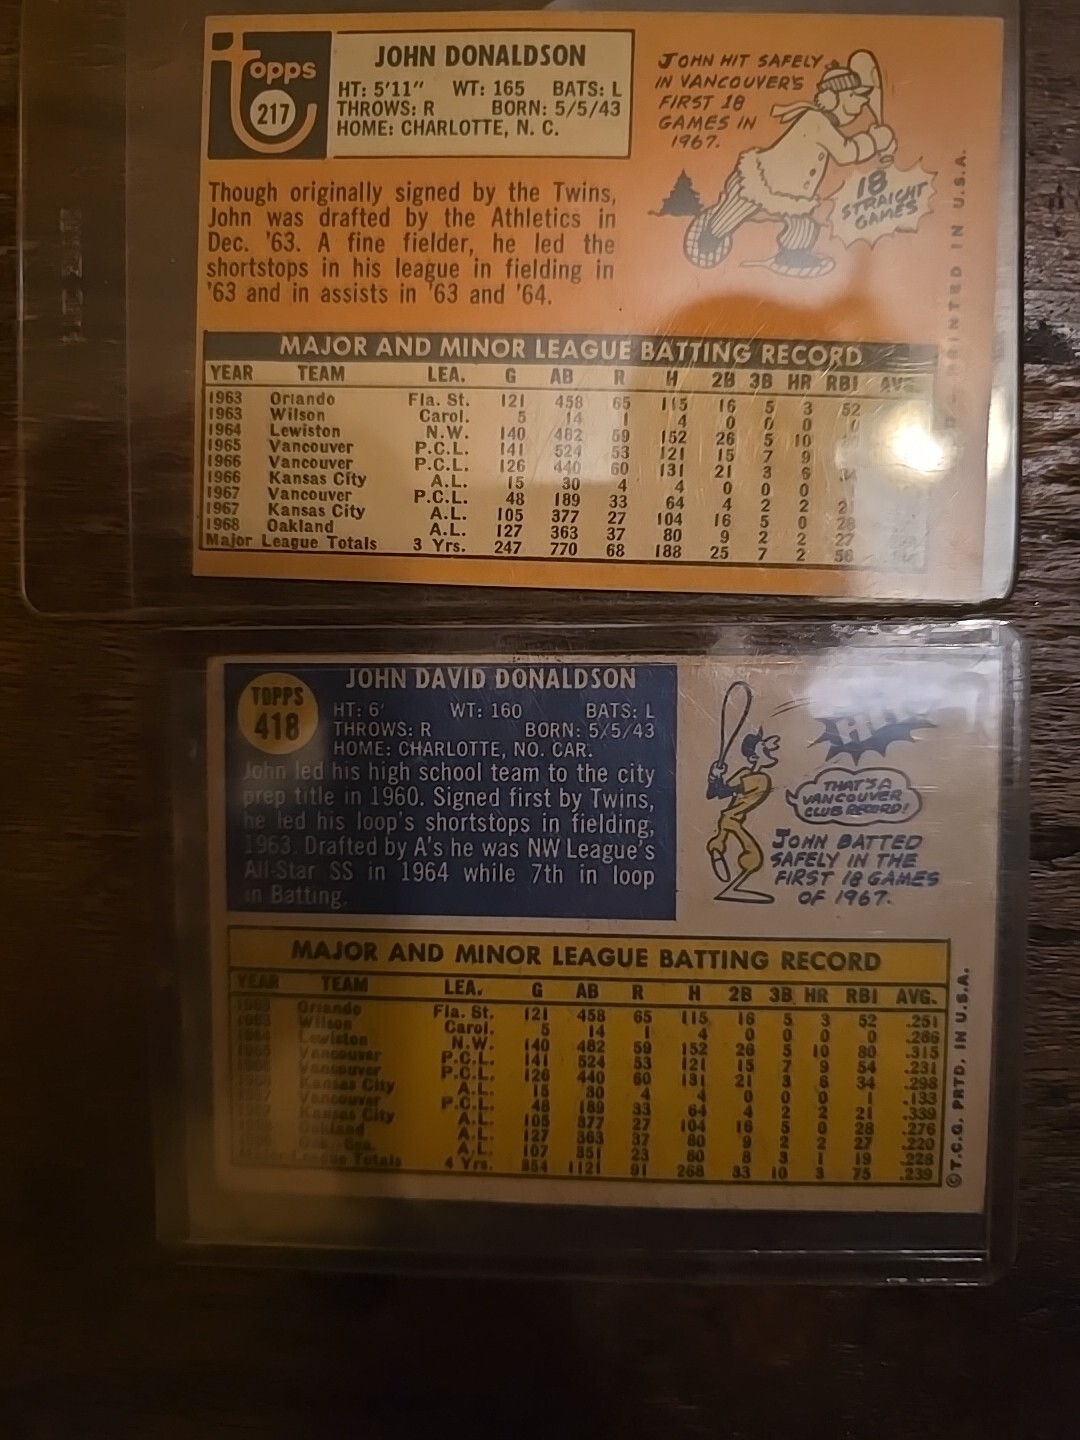 topps
217
JOHN DONALDSON
HT: 5'11" WT: 165 BATS: L
THROWS: R BORN: 5/5/43
HOME: CHARLOTTE, N. C.
JOHN HIT SAFELY
IN VANCOUVER'S
FIRST 18
GAMES IN
1967.
18
STRAIGHT
GAMES
Though originally signed by the Twins,
John was drafted by the Athletics in
Dec. '63. A fine fielder, he led the
shortstops in his league in fielding in
'63 and in assists in '63 and '64.
MAJOR AND MINOR LEAGUE BATTING RECORD
YEAR TEAM LEA. G AB R H 2B 3B HR RBI AVG.
1963 Orlando Fla. St. 121 458 65 115 16 5 3 52
1963 Wilson Carol. 5 14 1 4 0 0 0 0
1964 Lewiston N.W. 140 482 59 152 26 5 10
1965 Vancouver P.C.L. 141 524 53 121 15 7 9
1966 Vancouver P.C.L. 126 440 60 131 21 3 6 34
1966 Kansas City A.L. 15 30 4 4 0 0 0
1967 Vancouver P.C.L. 48 189 33 64 4 2 2 21
1967 Kansas City A.L. 105 377 27 104 16 5 0 28
1968 Oakland A.L. 127 363 37 80 9 2 2 27
Major League Totals 3 Yrs. 247 770 68 188 25 7 2 56
PRINTED IN U.S.A.
TOPPS
418
JOHN DAVID DONALDSON
HT: 6' WT: 160 BATS: L
THROWS: R BORN: 5/5/43
HOME: CHARLOTTE, NO. CAR.
John led his high school team to the city
prep title in 1960. Signed first by Twins,
he led his loop's shortstops in fielding,
1963. Drafted by A's he was NW League's
All-Star SS in 1964 while 7th in loop
in Batting.
HIT
THAT'S A
VANCOUVER
CLUB RECORD!
JOHN BATTED
SAFELY IN THE
FIRST 18 GAMES
OF 1967.
MAJOR AND MINOR LEAGUE BATTING RECORD
YEAR TEAM LEA. G AB R H 2B 3B HR RBI AVG.
1963 Orlando Fla. St. 121 458 65 115 16 5 3 52 .251
1963 Wilson Carol. 5 14 1 4 0 0 0 0 .286
Lewiston N.W. 140 482 59 152 26 5 10 80 .315
Vancouver P.C.L. 141 524 53 121 15 7 9 54 .231
Vancouver P.C.L. 126 440 60 131 21 3 6 34 .298
Kansas City A.L. 15 30 4 4 0 0 0 1 .133
Vancouver P.C.L. 48 189 33 64 4 2 2 21 .339
Kansas City A.L. 105 377 27 104 16 5 0 28 .276
Oakland A.L. 127 363 37 80 9 2 2 27 .220
A.L. 107 351 23 80 8 3 1 19 .228
Major League Totals 4 Yrs. 354 1121 91 268 33 10 3 75 .239
©T.C.G. PRTD. IN U.S.A.